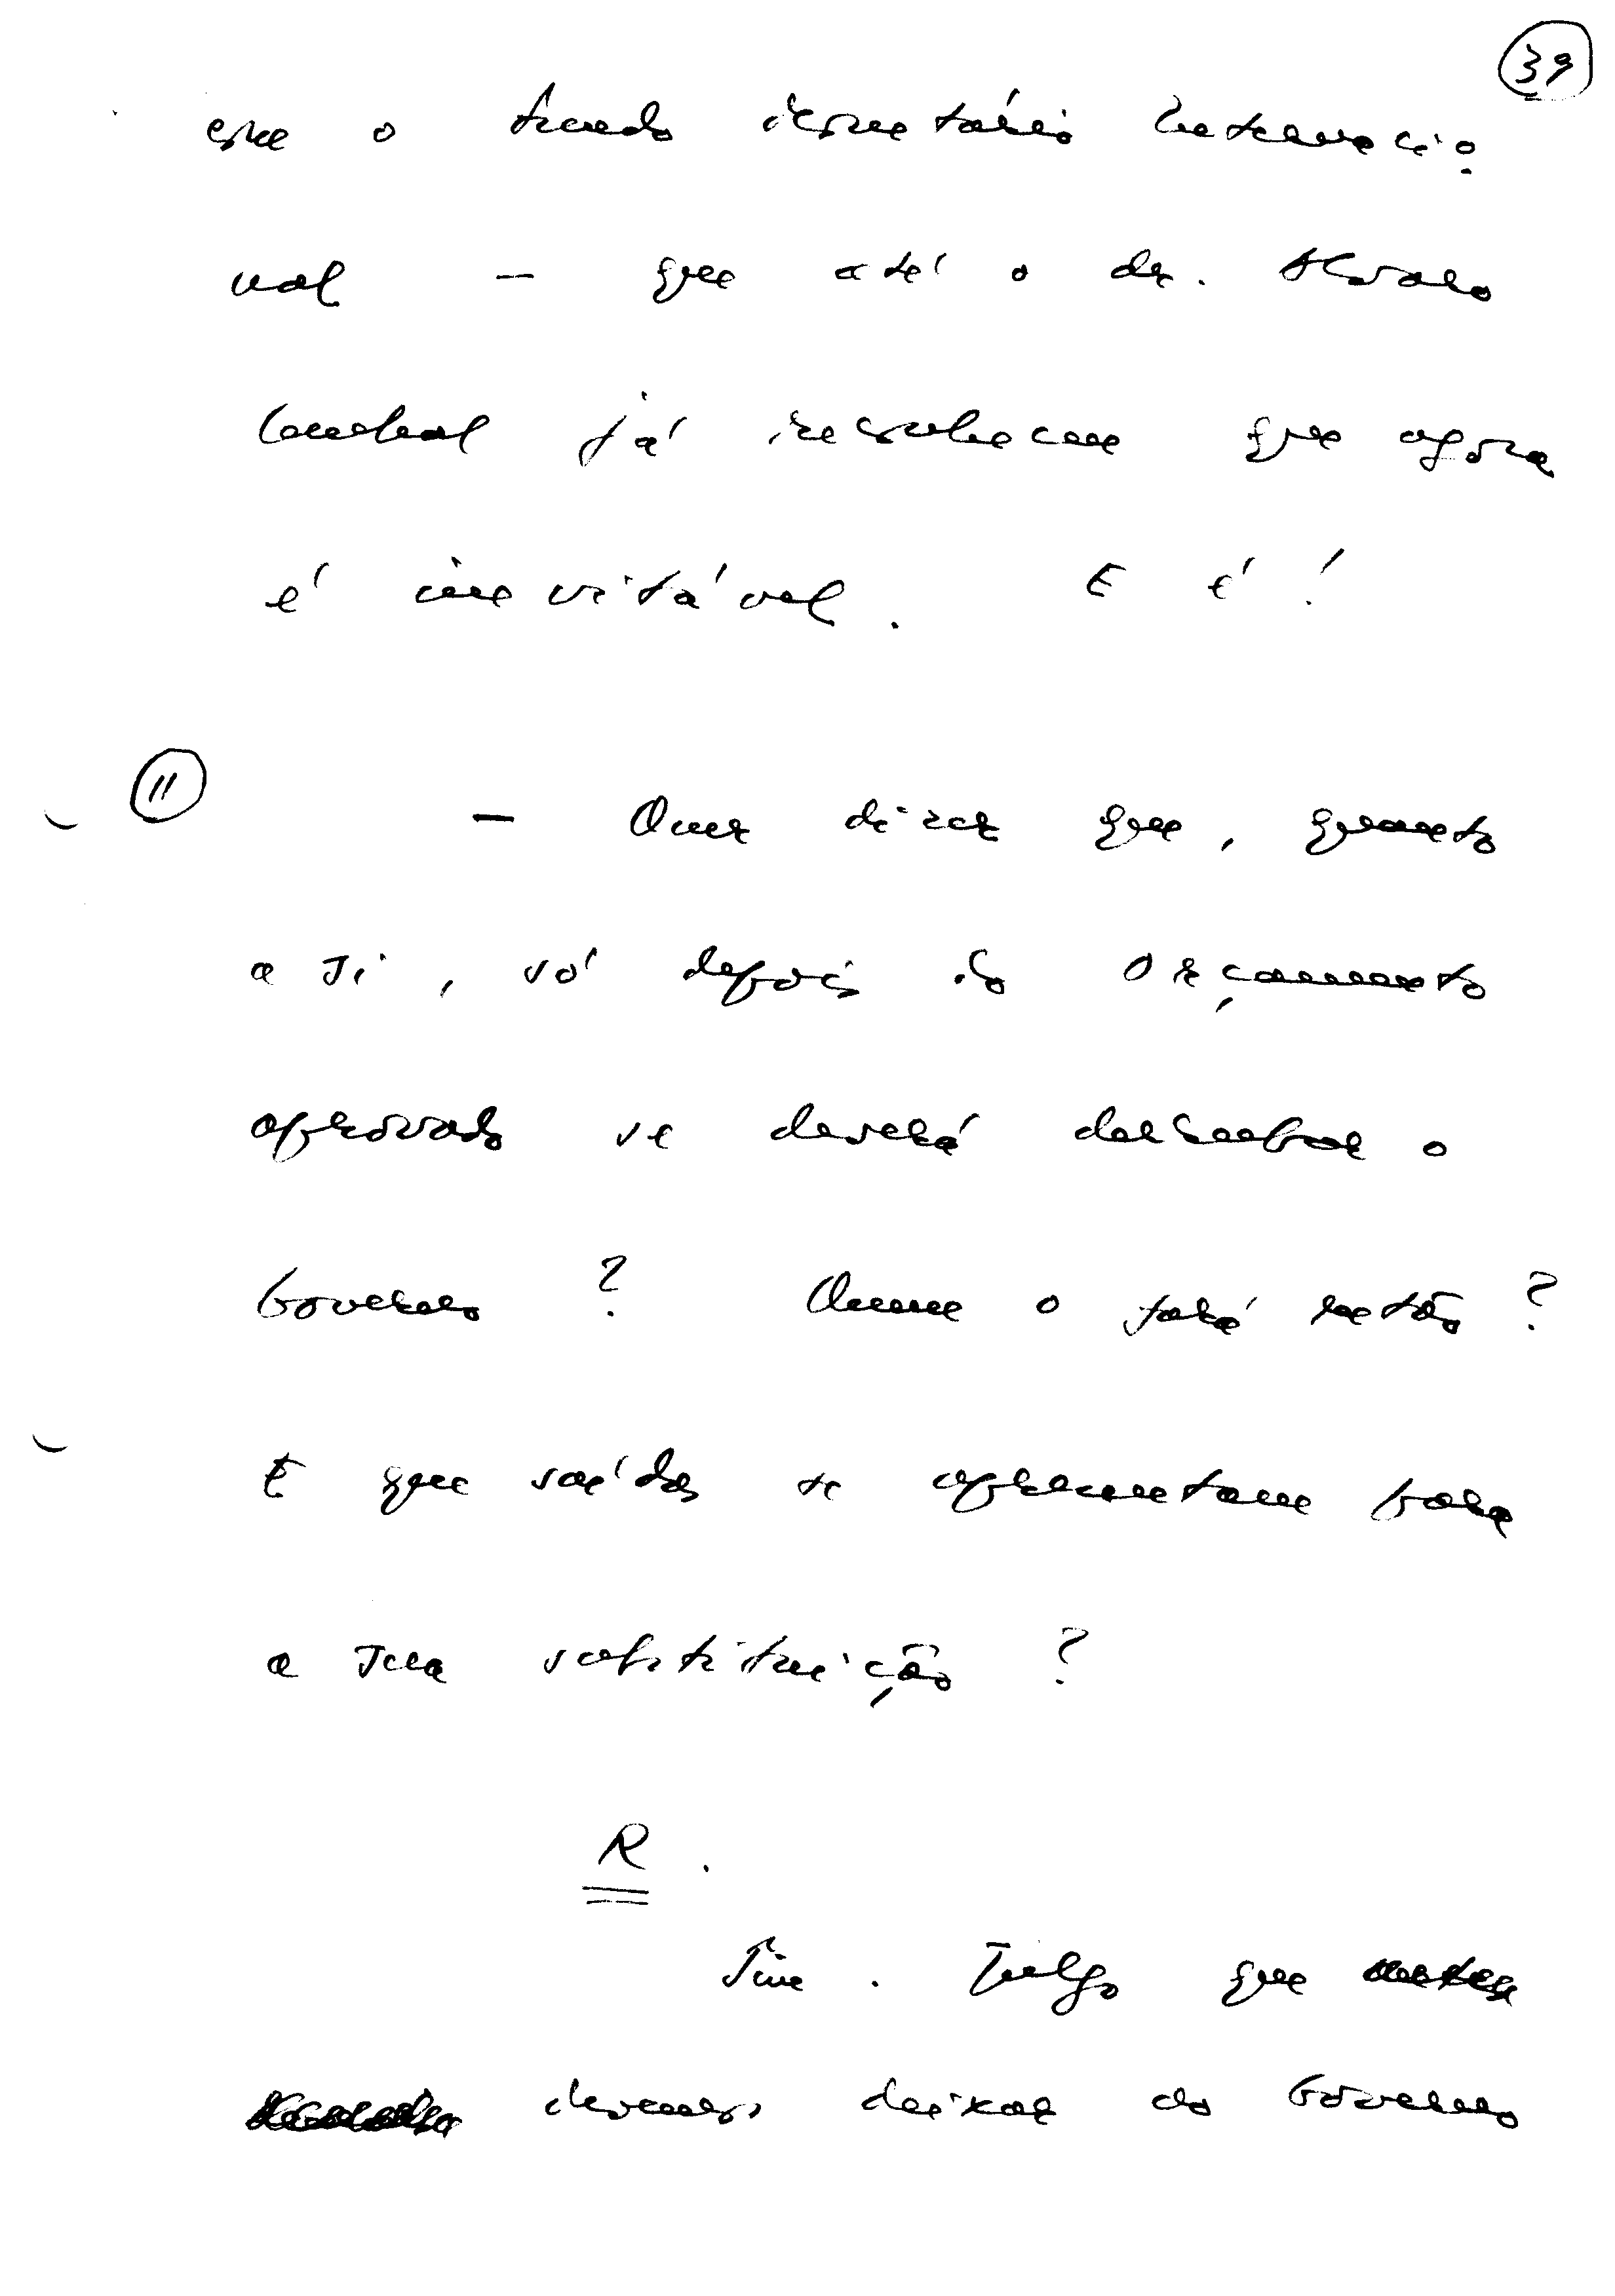 39
com o Fundo Monetário Internacio
nal — que até o dr. Álvaro
Cunhal já reconhece que agora
é inevitável. E é!
11
— Quer dizer que, quanto
a si, só depois do Orçamento
aprovado se deverá derrubar o
Governo? Quem o fará então?
E que saídas se apresentam para
a sua substituição?
R.
Sim. Julgo que
devemos deixar ao Governo